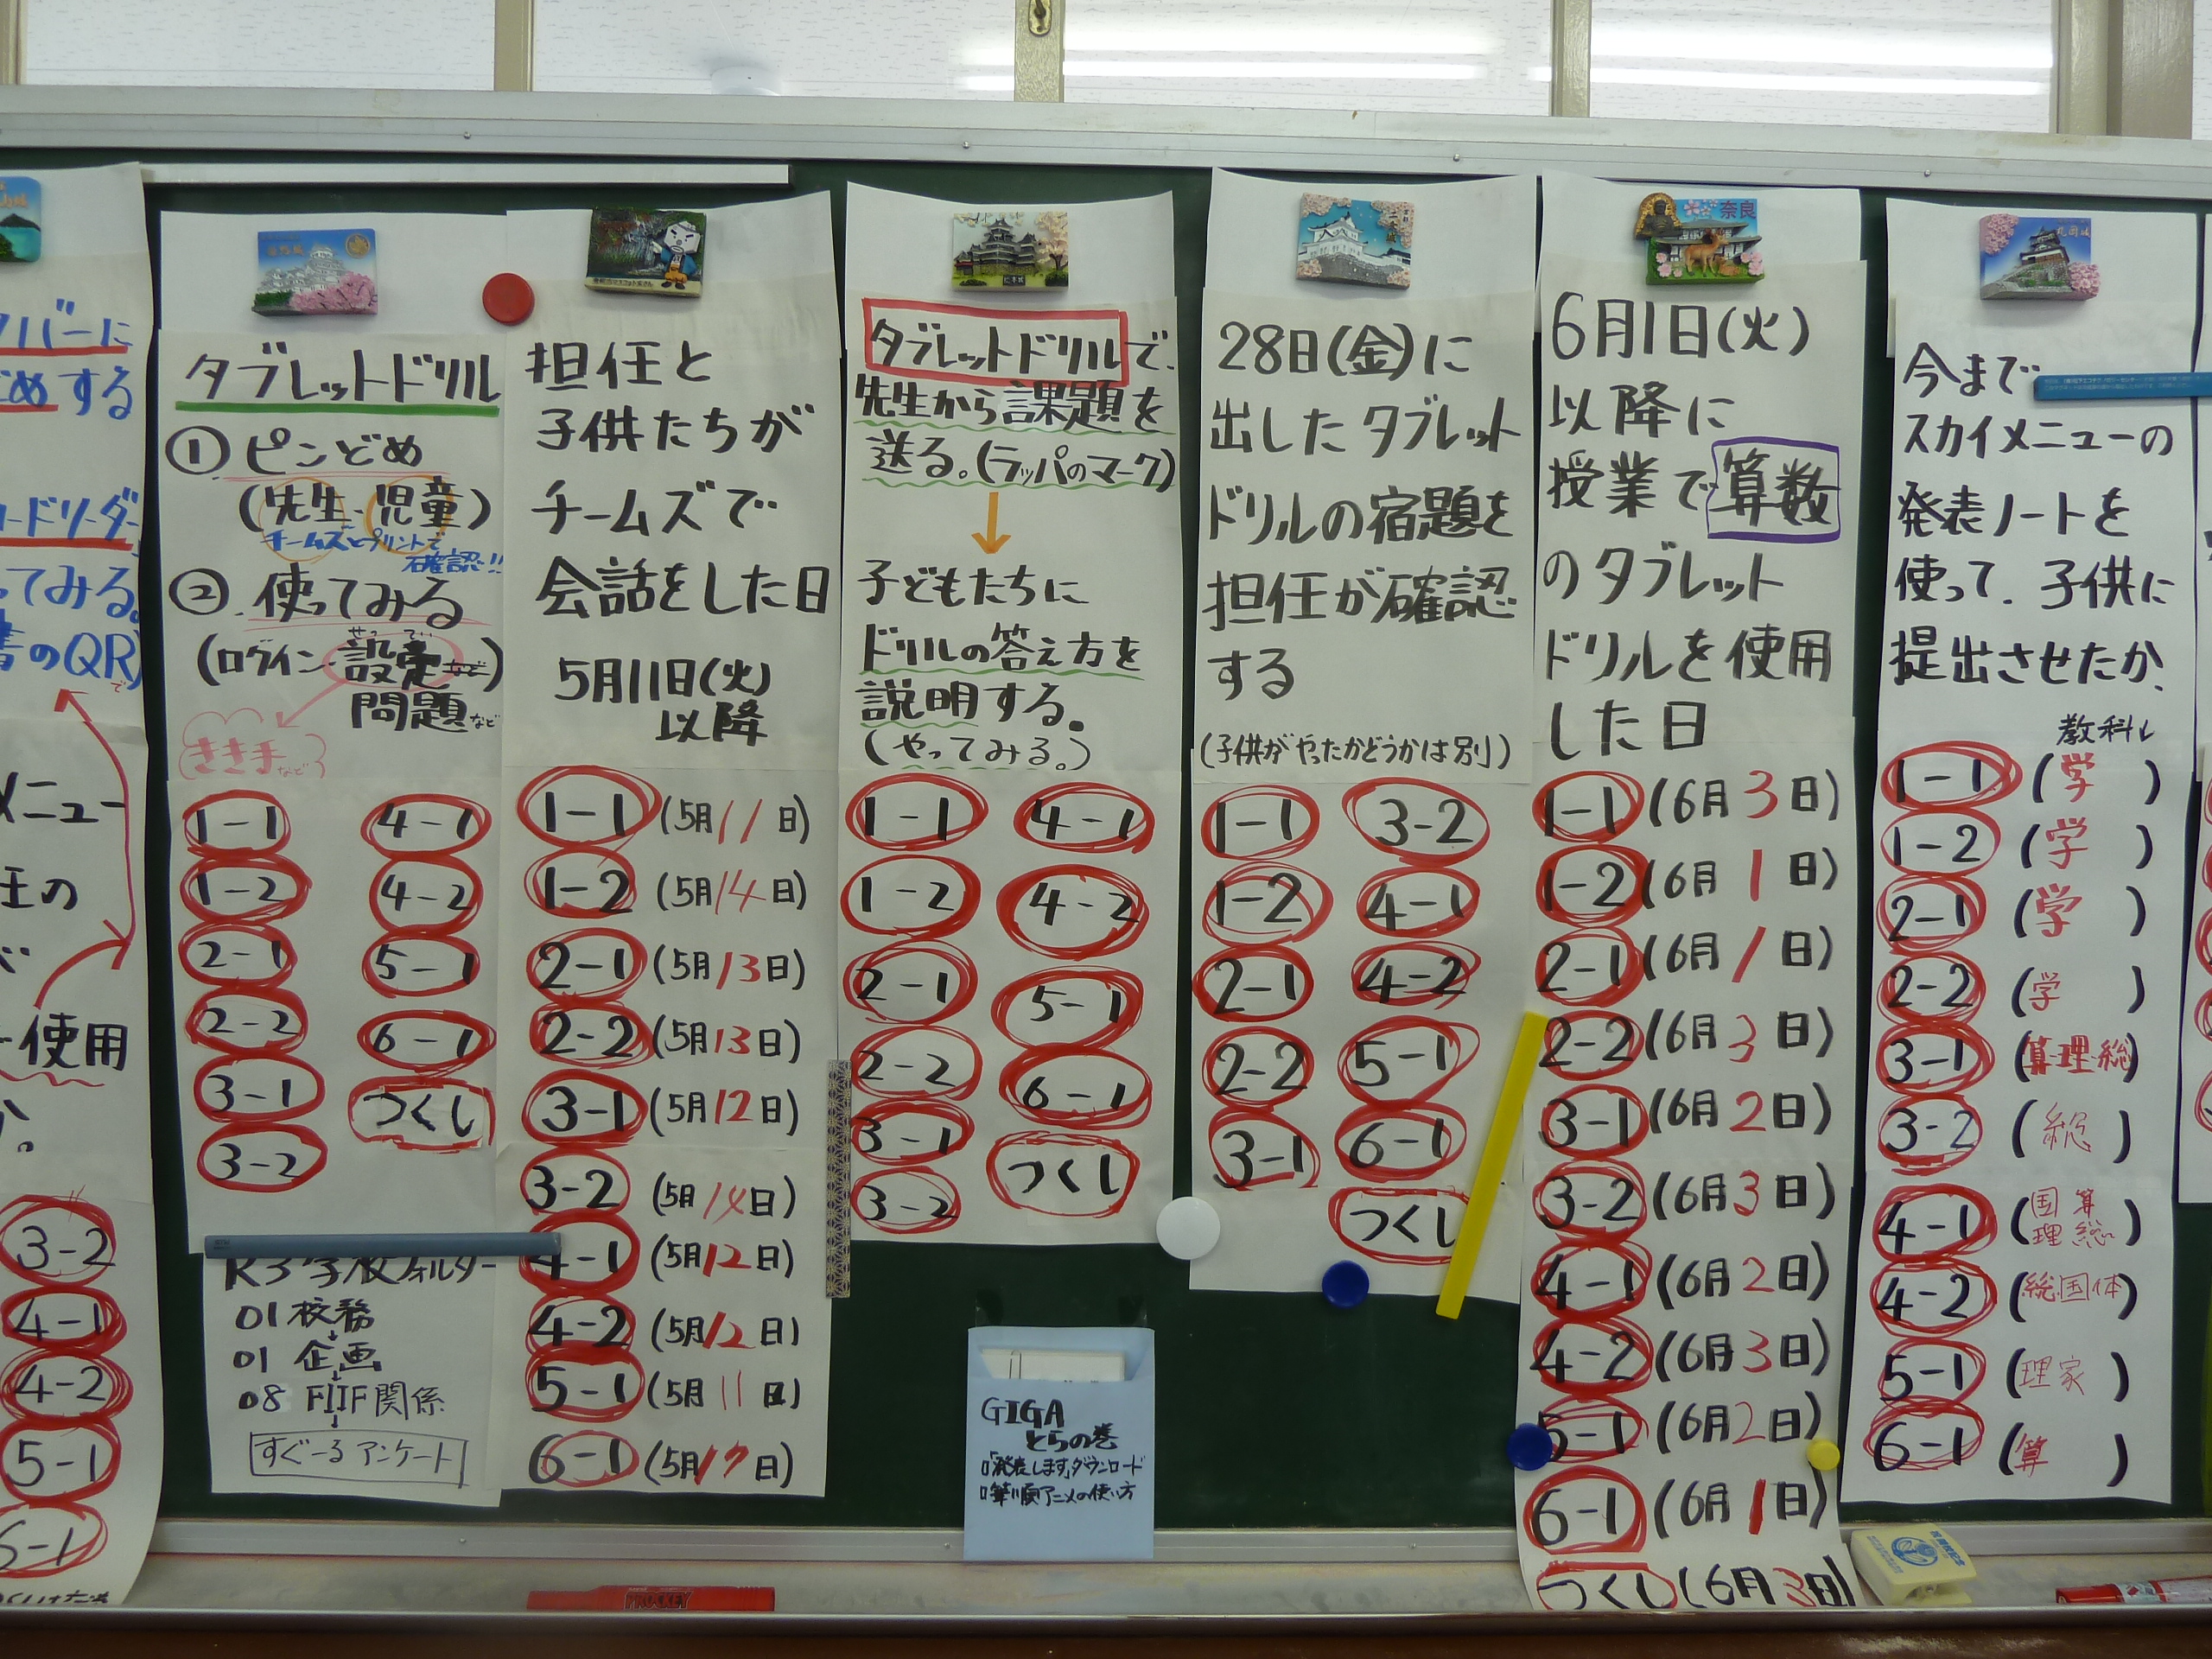 バーに
めする
ードリーダー
ってみる。
書のQR
で
メニュー
任の
使用
3-2
4-1
4-2
5-1
6-1
タブレットドリル
① ピンどめ
(先生・児童)
チームズとプリントで
確認!!
② 使ってみる
(ログイン・設定など)
せってい
問題など
きき手など
1-1
1-2
2-1
2-2
3-1
3-2
4-1
4-2
5-1
6-1
つくし
R3学校フォルダー
01 校務
↓
01 企画
↓
08 FIIF関係
↓
すぐーるアンケート
担任と
子供たちが
チームズで
会話をした日
5月11日(火)
以降
1-1 (5月11日)
1-2 (5月14日)
2-1 (5月13日)
2-2 (5月13日)
3-1 (5月12日)
3-2 (5月14日)
4-1 (5月12日)
4-2 (5月12日)
5-1 (5月11日)
6-1 (5月17日)
タブレットドリルで、
先生から課題を
送る。(ラッパのマーク)
↓
子どもたちに
ドリルの答え方を
説明する。
(やってみる。)
1-1
1-2
2-1
2-2
3-1
3-2
4-1
4-2
5-1
6-1
つくし
GIGA
とらの巻
□「発表します」ダウンロード
□筆順アニメの使い方
28日(金)に
出したタブレット
ドリルの宿題を
担任が確認
する
(子供がやったかどうかは別)
1-1
1-2
2-1
2-2
3-1
3-2
4-1
4-2
5-1
6-1
つくし
奈良
6月1日(火)
以降に
授業で算数
のタブレット
ドリルを使用
した日
1-1 (6月3日)
1-2 (6月1日)
2-1 (6月1日)
2-2 (6月3日)
3-1 (6月2日)
3-2 (6月3日)
4-1 (6月2日)
4-2 (6月3日)
5-1 (6月2日)
6-1 (6月1日)
つくし (6月3日)
今まで
スカイメニューの
発表ノートを
使って、子供に
提出させたか、
教科
1-1 (学)
1-2 (学)
2-1 (学)
2-2 (学)
3-1 (算・理・総)
3-2 (総)
4-1 (国 算
理 総)
4-2 (総国体)
5-1 (理家)
6-1 (算)
PROCKEY